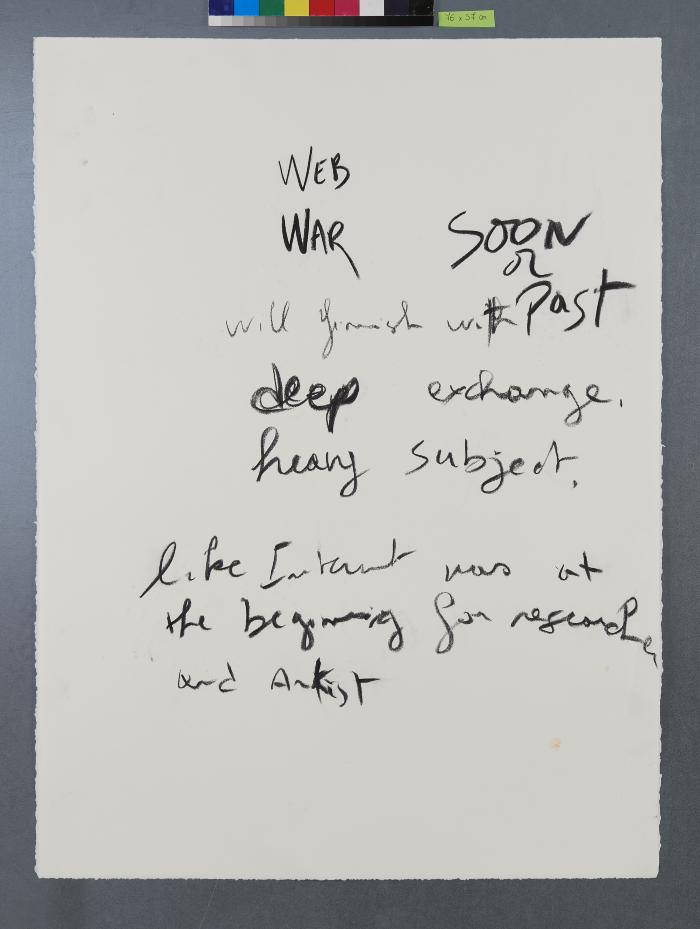 76 x 57 cm
WEB
WAR SOON
or
will finish with Past
deep exchange.
heavy subject.
like Internet was at
the beginning for researcher
and Artist